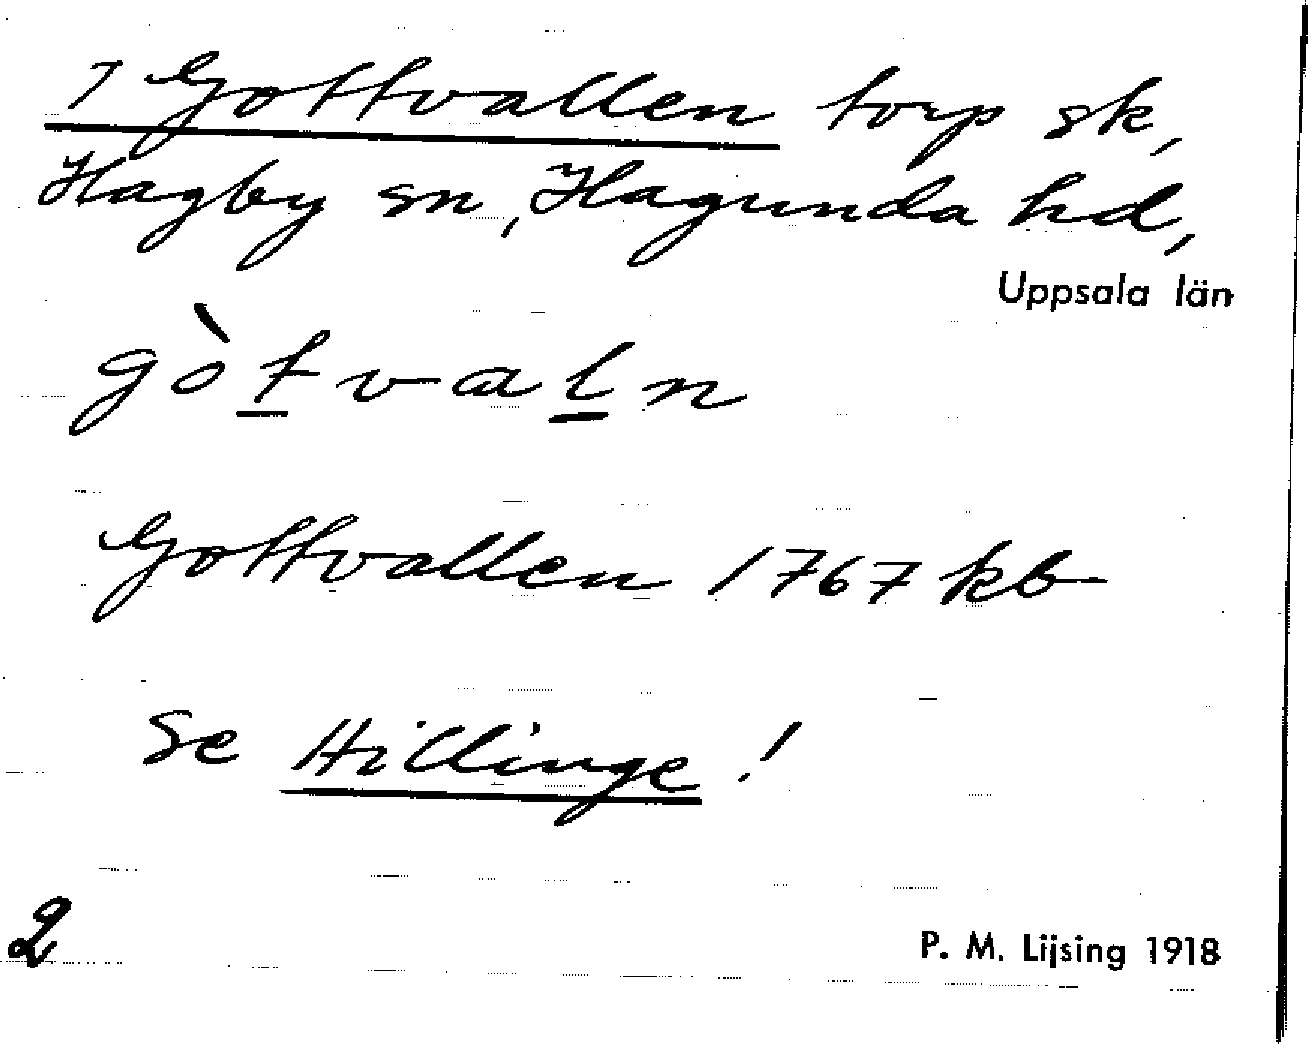 7 Gottvallen torp sk,
Hagby sn, Hagunda hd,
Uppsala län
gòtvaln
Gottvallen 1767 kb
Se Hillinge!
2
P. M. Lijsing 1918